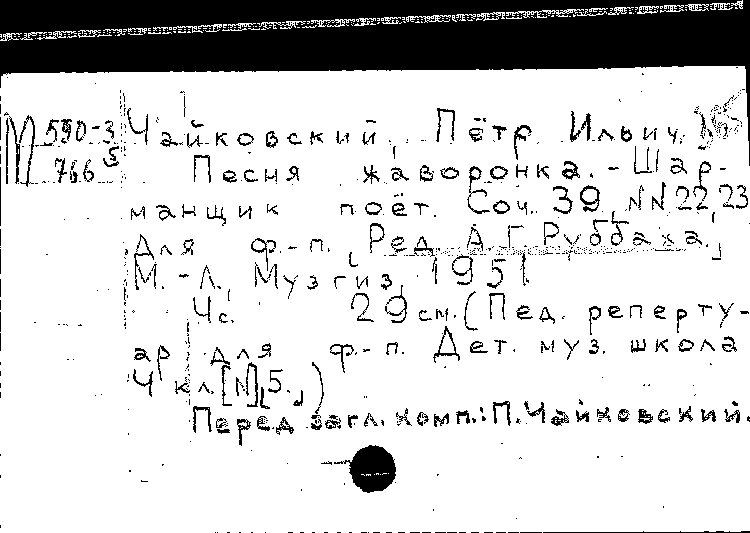 М 590-3 Чайковский, Пётр Ильич.
766 5 Песня жаворонка. - Шар-
манщик поёт. Соч. 39, NN 22, 23
Для ф.-п. [Ред. А.Г. Руббаха.]
М.-Л., Музгиз, 1951
4 с. 29 см. (Пед. реперту-
ар для ф.-п. Дет. муз. школа
4 кл. [N] [5.])
Перед загл. комп.: П. Чайковский.